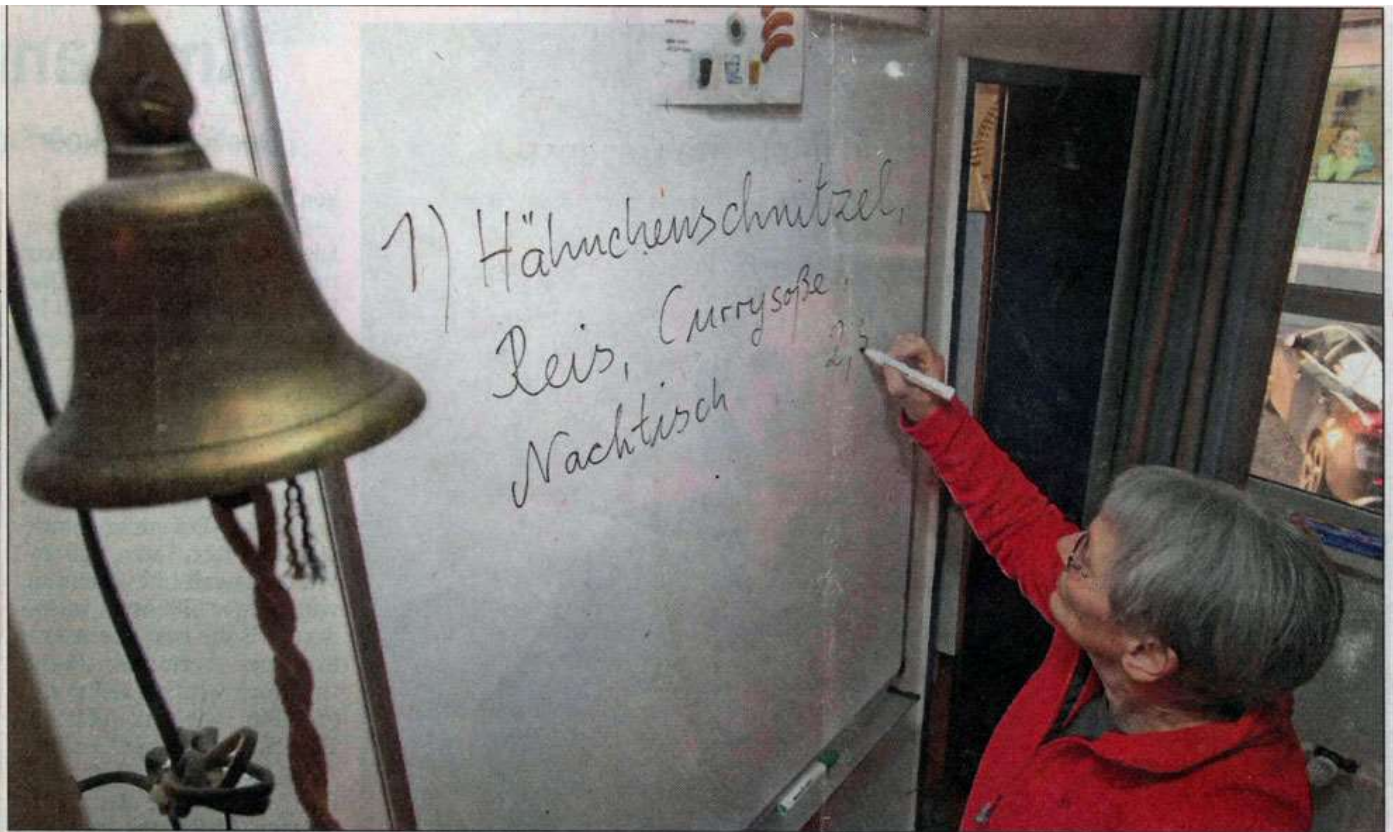 1) Hähnchenschnitzel,
Reis, Currysoße,
2,3
Nachtisch